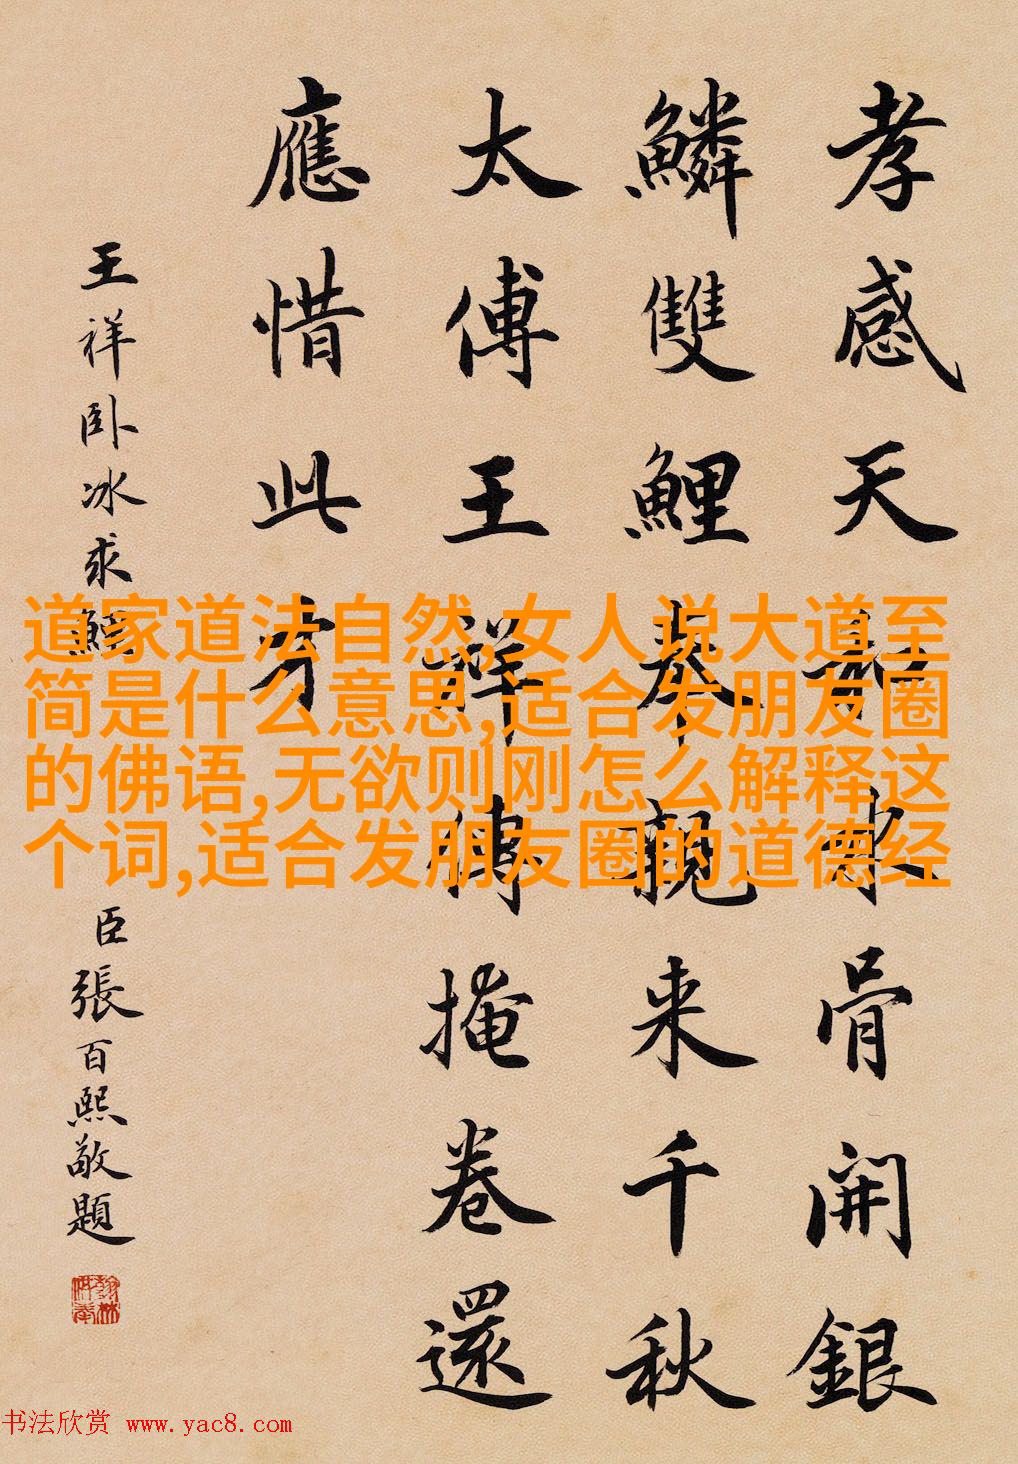 孝感天氷骨開銀
鱗雙鯉奉親来千秋
太傅王祥傳掩卷還
應惜此才
王祥卧冰求鯉
臣張百熙敬題
道家道法自然,女人说大道至
简是什么意思,适合发朋友圈
的佛语,无欲则刚怎么解释这
个词,适合发朋友圈的道德经
书法欣赏 www.yac8.com